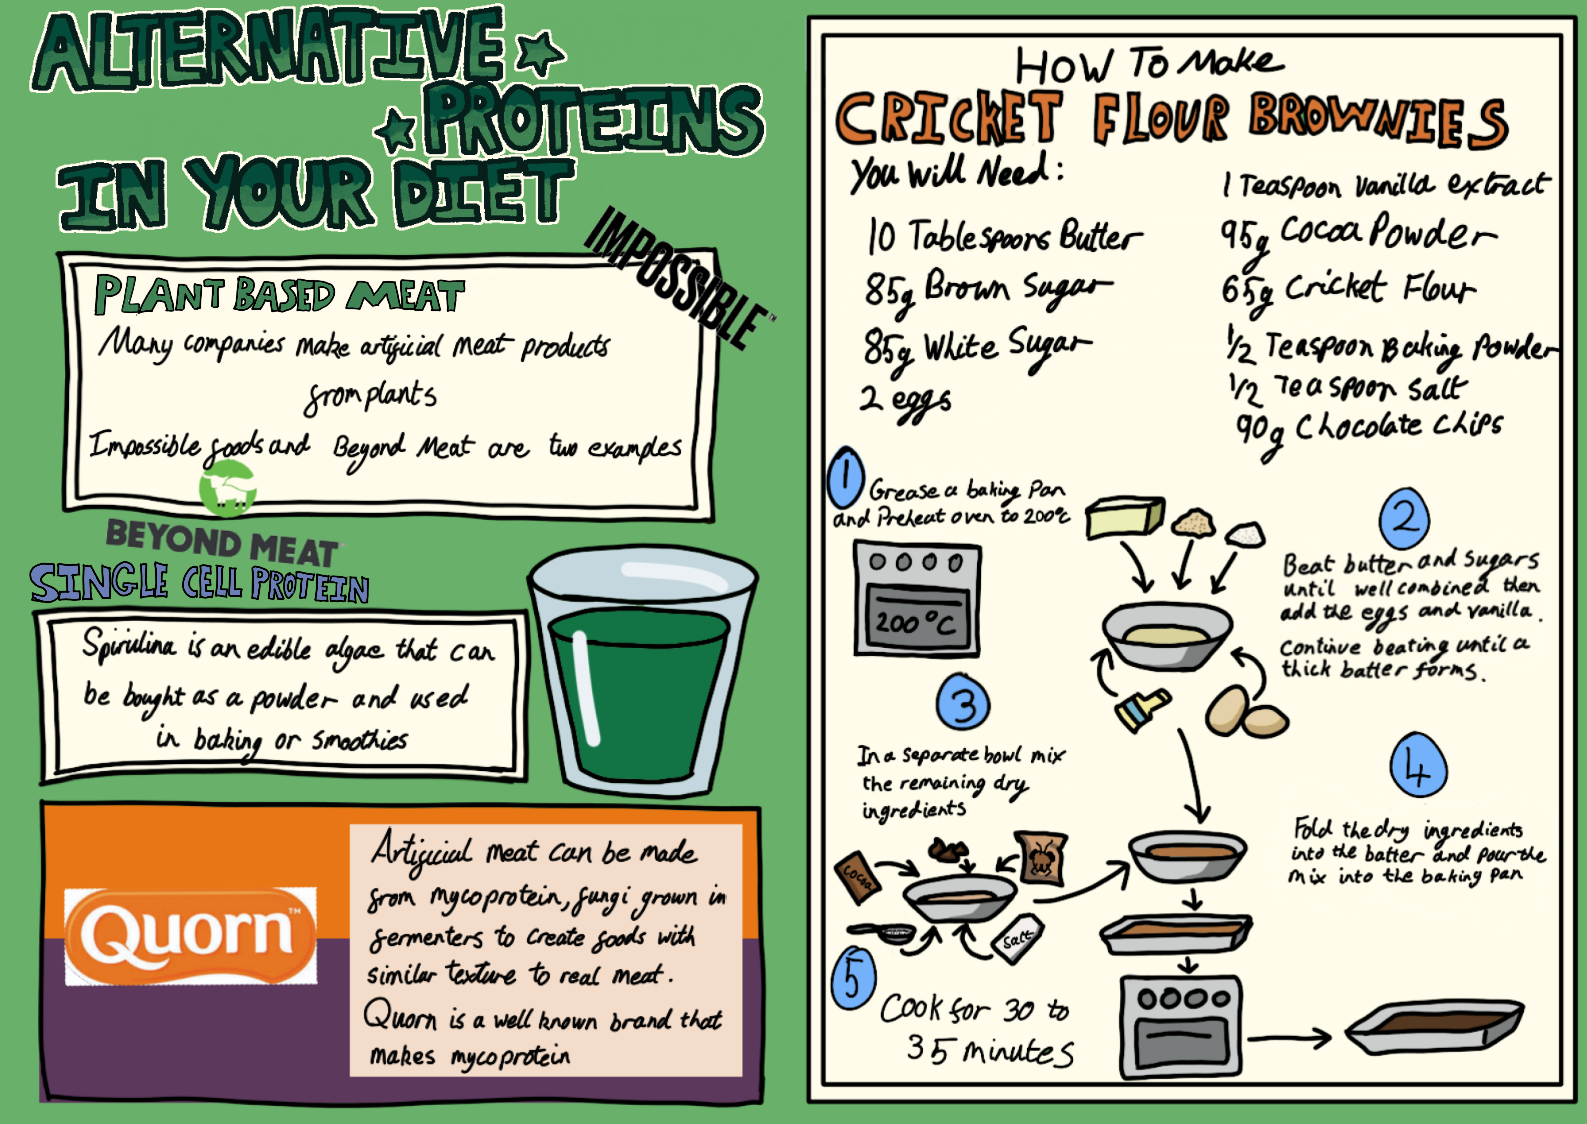 ALTERNATIVE
PROTEINS
IN YOUR DIET
IMPOSSIBLE™
PLANT BASED MEAT
Many companies make artificial meat products
from plants
Impossible foods and Beyond Meat are two examples
BEYOND MEAT
SINGLE CELL PROTEIN
Spirulina is an edible algae that can
be bought as a powder and used
in baking or smoothies
Quorn™
Artificial meat can be made
from mycoprotein, fungi grown in
fermenters to create foods with
similar texture to real meat.
Quorn is a well known brand that
makes mycoprotein
How To Make
CRICKET FLOUR BROWNIES
You Will Need:
10 Tablespoons Butter
85g Brown Sugar
85g White Sugar
2 eggs
1 Teaspoon Vanilla extract
95g Cocoa Powder
65g Cricket Flour
1/2 Teaspoon Baking Powder
1/2 Teaspoon Salt
90g Chocolate Chips
1
Grease a baking Pan
and Preheat oven to 200°c
200°C
2
Beat butter and sugars
until well combined then
add the eggs and vanilla.
Continue beating until a
thick batter forms.
3
In a separate bowl mix
the remaining dry
ingredients
Cocoa
Salt
4
Fold the dry ingredients
into the batter and pour the
mix into the baking pan
5
Cook for 30 to
35 minutes